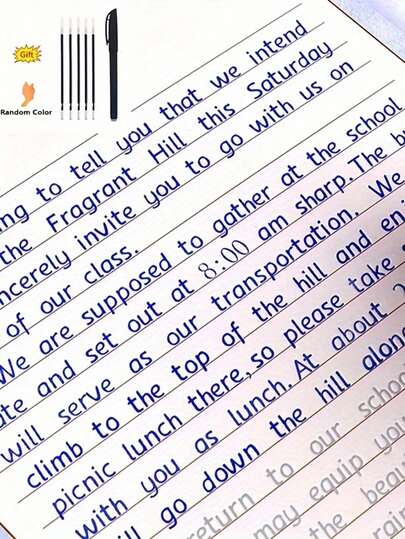 Gift
Random Color
ing to tell you that we intend
the Fragrant Hill this Saturday
ncerely invite you to go with us on
of our class.
We are supposed to gather at the school
ate and set out at 8:00 am sharp. The bu
will serve as our transportation. We
climb to the top of the hill and enj
picnic lunch there, so please take
with you as lunch. At about 2
ill go down the hill along
return to our schoo
may equip you
the beau
rain